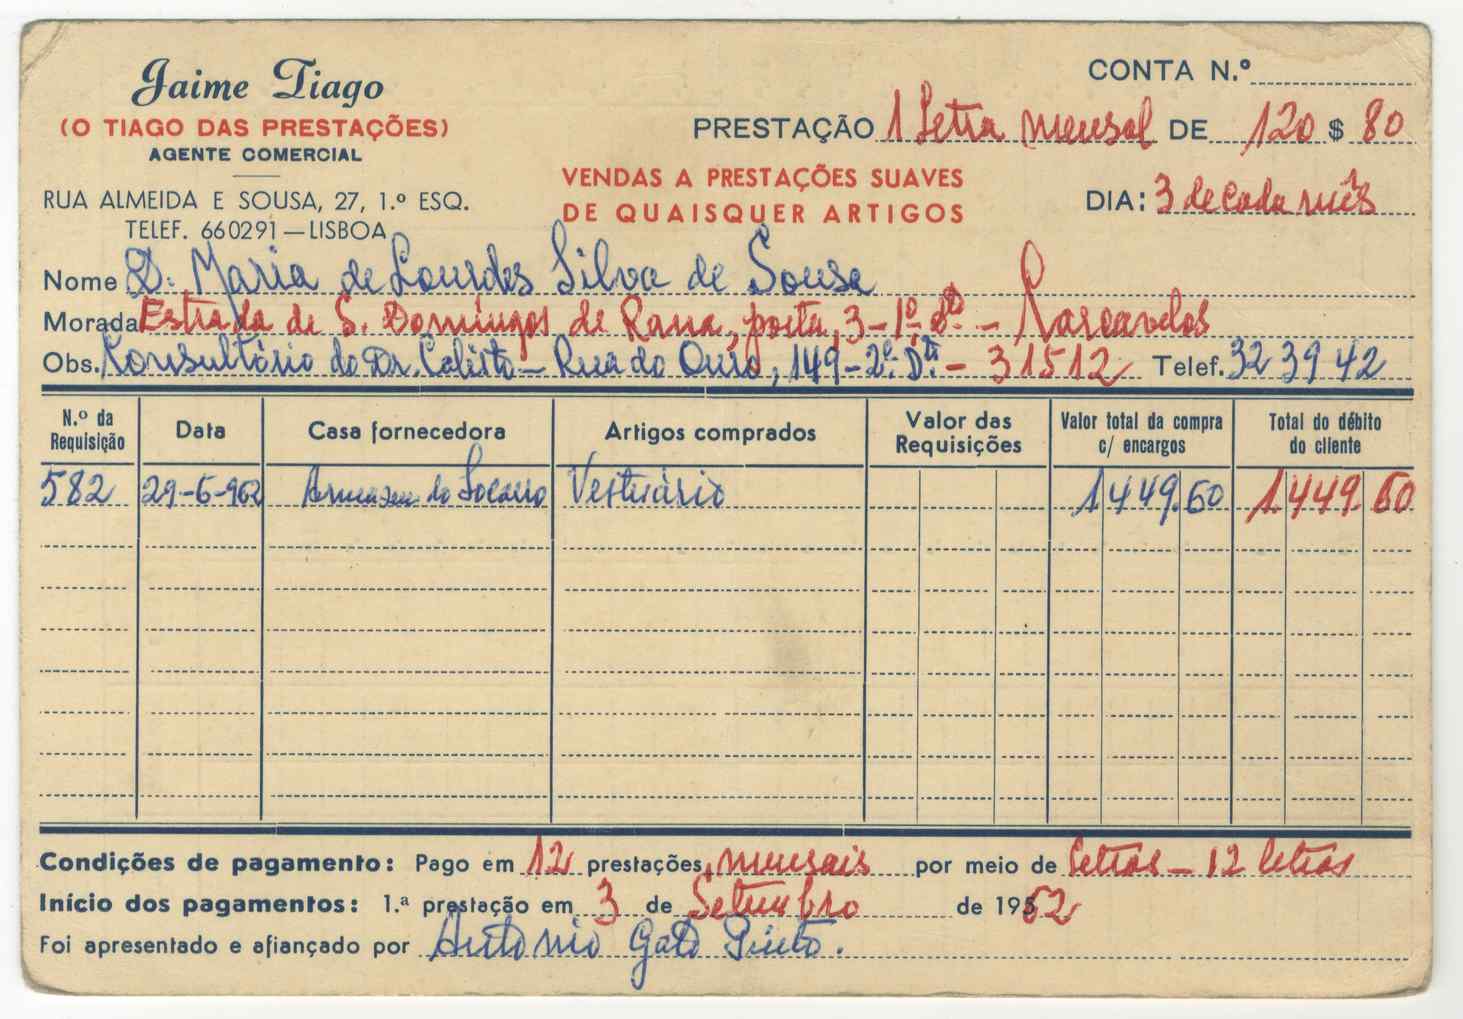 Jaime Tiago
(O TIAGO DAS PRESTAÇÕES)
AGENTE COMERCIAL
RUA ALMEIDA E SOUSA, 27, 1.º ESQ.
TELEF. 660291—LISBOA
CONTA N.º
PRESTAÇÃO 1 Letra mensal DE 120 $ 80
VENDAS A PRESTAÇÕES SUAVES
DE QUAISQUER ARTIGOS
DIA: 3 de cada mês
Nome D. Maria de Lourdes Silva de Sousa
Morada Estrada de S. Domingos de Rana, porta, 3-1º dtº - Carcavelos
Obs. Consultório do Dr. Calisto - Rua do Ouro, 149-2º. Dt. - 31512 Telef. 32 39 42
N.º da Requisição Data Casa fornecedora Artigos comprados Valor das Requisições Valor total da compra c/ encargos Total do débito do cliente
582 29-6-962 Armazem do Vestuário 1.449.60 1.449.60
Condições de pagamento: Pago em 12 prestações mensais por meio de letras - 12 letras
Início dos pagamentos: 1.ª prestação em 3 de Setembro de 1962
Foi apresentado e afiançado por Antonio Gato Pinto.